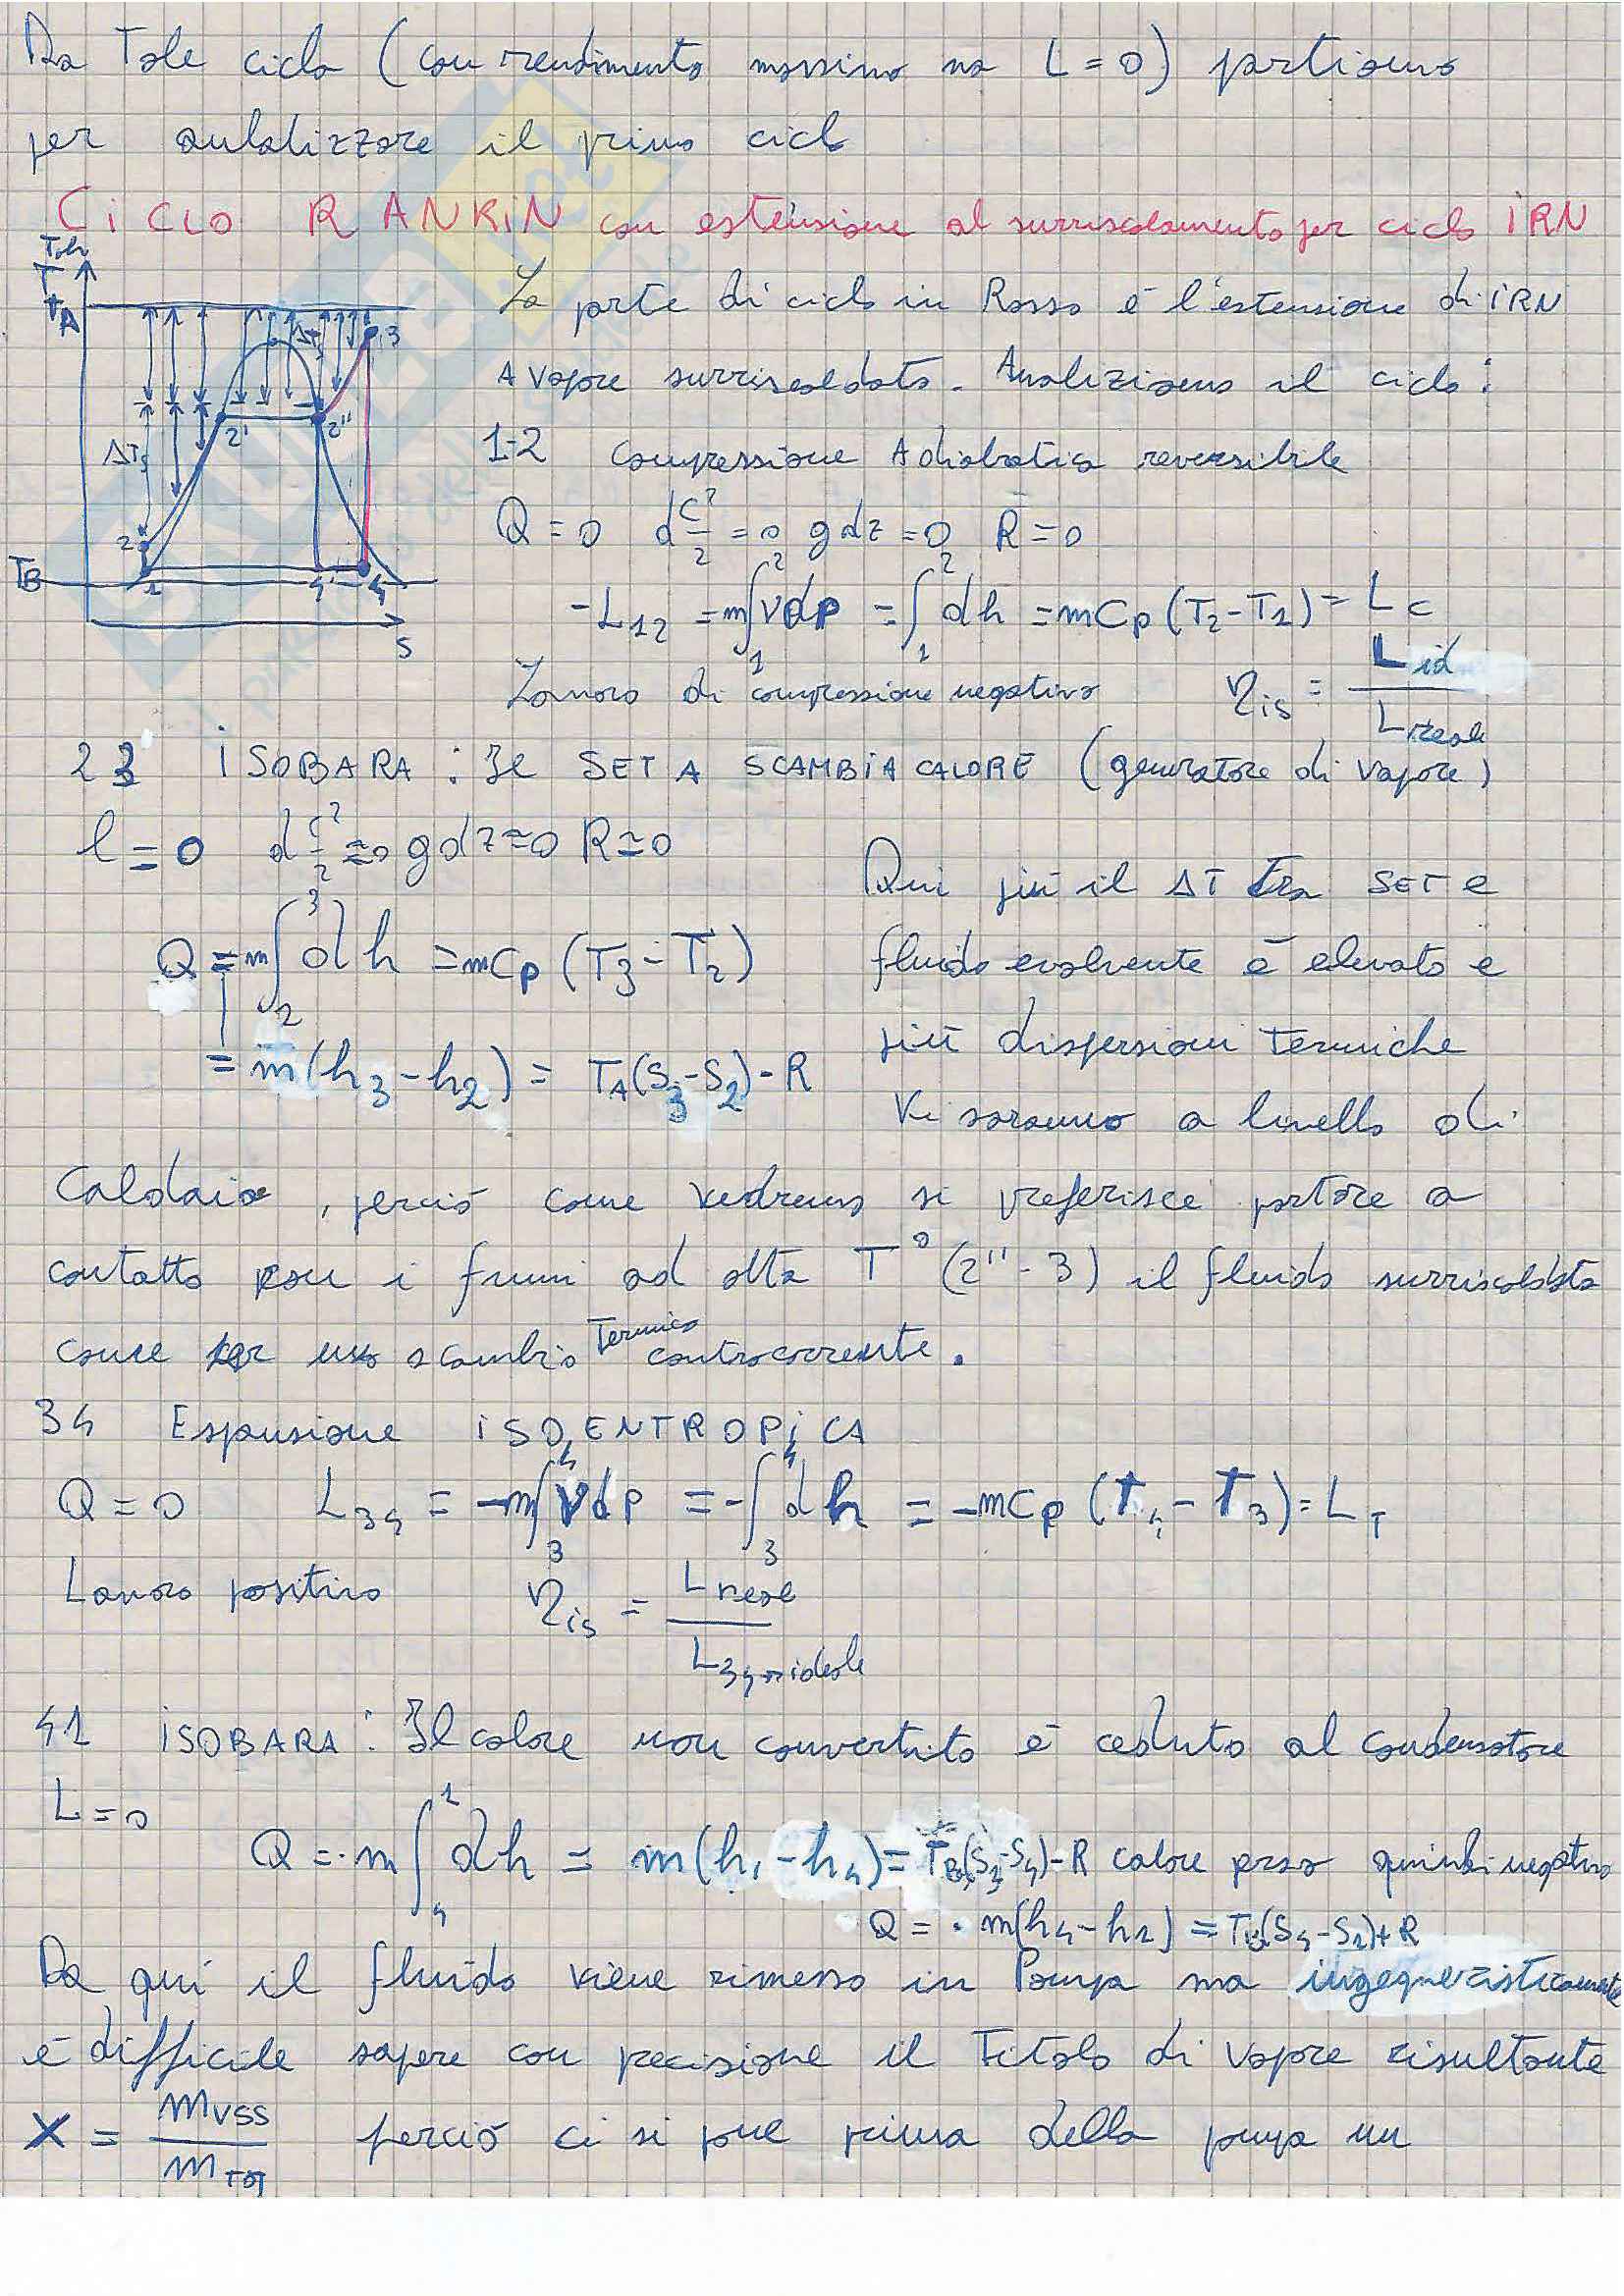 Da Tale ciclo (con rendimento massimo ma L=0) partiamo
per analalizzare il primo ciclo
CICLO RANKIN con estensione al surriscaldamento per ciclo IRN
La parte di ciclo in Rosso è l'estensione di IRN
A vapore surriscaldato. Analizziamo il ciclo:
T
TA
ΔT
3
2'
2''
ΔT
2
TB
1
4'
4
S
1-2 compressione Adiabatica reversibile
Q=0 dc²/2=0 gdz=0 R=0
-L12 = m∫₁²vdp = ∫₁²dh = mCp(T2-T1) = Lc
Lavoro di compressione negativo ηis = Lid/Lreale
23 ISOBARA: Il SET A SCAMBIA CALORE (generatore di vapore)
l=0 dc²/2≃0 gdz≃0 R≃0
Q = m∫₂³dh = mCp(T3-T2)
= m(h3-h2) = TA(S3-S2)-R
Qui più il ΔT tra SET e
fluido evolvente è elevato e
più dispersioni Termiche
Vi saranno a livello di
Caldaia, perciò come vedremo si preferisce portare a
contatto con i fumi ad alta T° (2''-3) il fluido surriscaldato
come per uno scambio Termico controcorrente.
34 Espansione ISOENTROPICA
Q=0 L34 = -m∫₃⁴vdp = -∫₃⁴dh = -mCp(T4-T3) = LT
Lavoro positivo ηis = Lreale/L34→ideale
41 ISOBARA: Il calore non convertito è ceduto al condensatore
L=0
Q = m∫₄¹dh = m(h1-h4) = TB(S1-S4)-R calore perso quindi negativo
Q = m(h4-h1) = TB(S4-S1)+R
Da qui il fluido viene rimesso in Pompa ma ingegneristicamente
è difficile sapere con precisione il Titolo di vapore risultante
X = mVSS/mTOT perciò ci si pone prima della pompa un